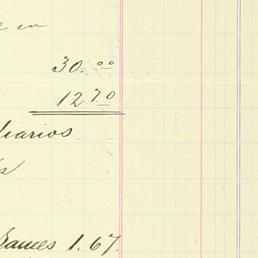 e en
30.00
12.70
diarios
James 1.67.